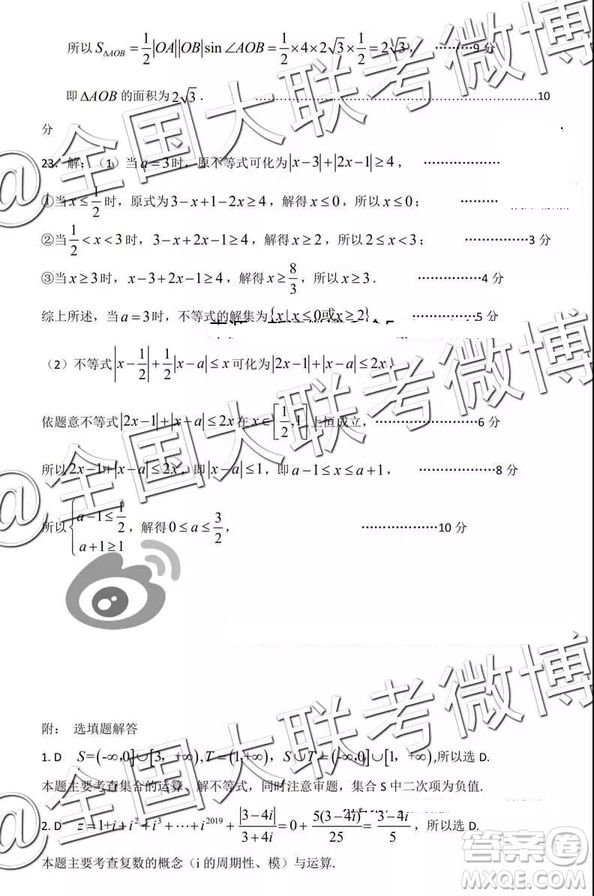 所以 S△AOB = 1/2|OA||OB|sin∠AOB = 1/2×4×2√3×1/2 = 2√3， ………9 分
即 ΔAOB 的面积为 2√3 . ………………………………………10
分
23. 解：（1）当 a=3 时，原不等式可化为 |x-3|+|2x-1|≥4， ………………
①当 x≤1/2 时，原式为 3-x+1-2x≥4，解得 x≤0，所以 x≤0；
②当 1/2<x<3 时，3-x+2x-1≥4，解得 x≥2，所以 2≤x<3； ……………3 分
③当 x≥3 时，x-3+2x-1≥4，解得 x≥8/3，所以 x≥3． ……………4 分
综上所述，当 a=3 时，不等式的解集为 {x|x≤0或x≥2} ……………5 分
（2）不等式 |x-1/2|+1/2|x-a|≤x 可化为 |2x-1|+|x-a|≤2x，
依题意不等式 |2x-1|+|x-a|≤2x 在 x∈[1/2,1] 上恒成立， ……………6 分
所以 2x-1+|x-a|≤2x，即 |x-a|≤1，即 a-1≤x≤a+1， ……………8 分
所以 {a-1≤1/2, a+1≥1，解得 0≤a≤3/2， ……………10 分
附： 选填题解答
1. D S=(-∞,0]∪[3，+∞),T=(1,+∞)，S∪T=(-∞,0]∪[1，+∞),所以选 D.
本题主要考查集合的运算、解不等式，同时注意审题，集合 S 中二次项为负值.
2. D z=1+i+i²+i³+⋯+i²⁰¹⁹+|3-4i|/(3+4i)=0+5(3-4i)/25=(3-4i)/5，所以选 D.
本题主要考查复数的概念（i 的周期性、模）与运算.
@全国大联考微博
@全国大联考微博
@全国大联考微博
答案圈